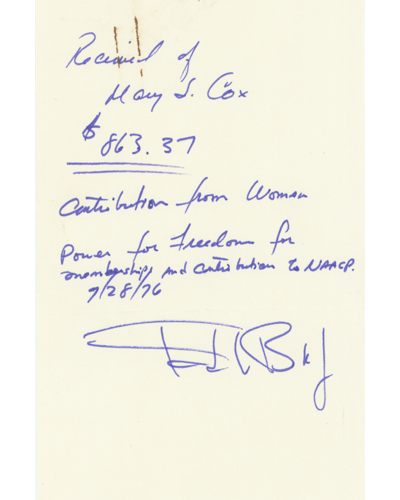 Received of
Mary S. Cox
$ 863.37
Contribution from Woman
Power for Freedom for
memberships and contribution to NAACP.
9/28/76